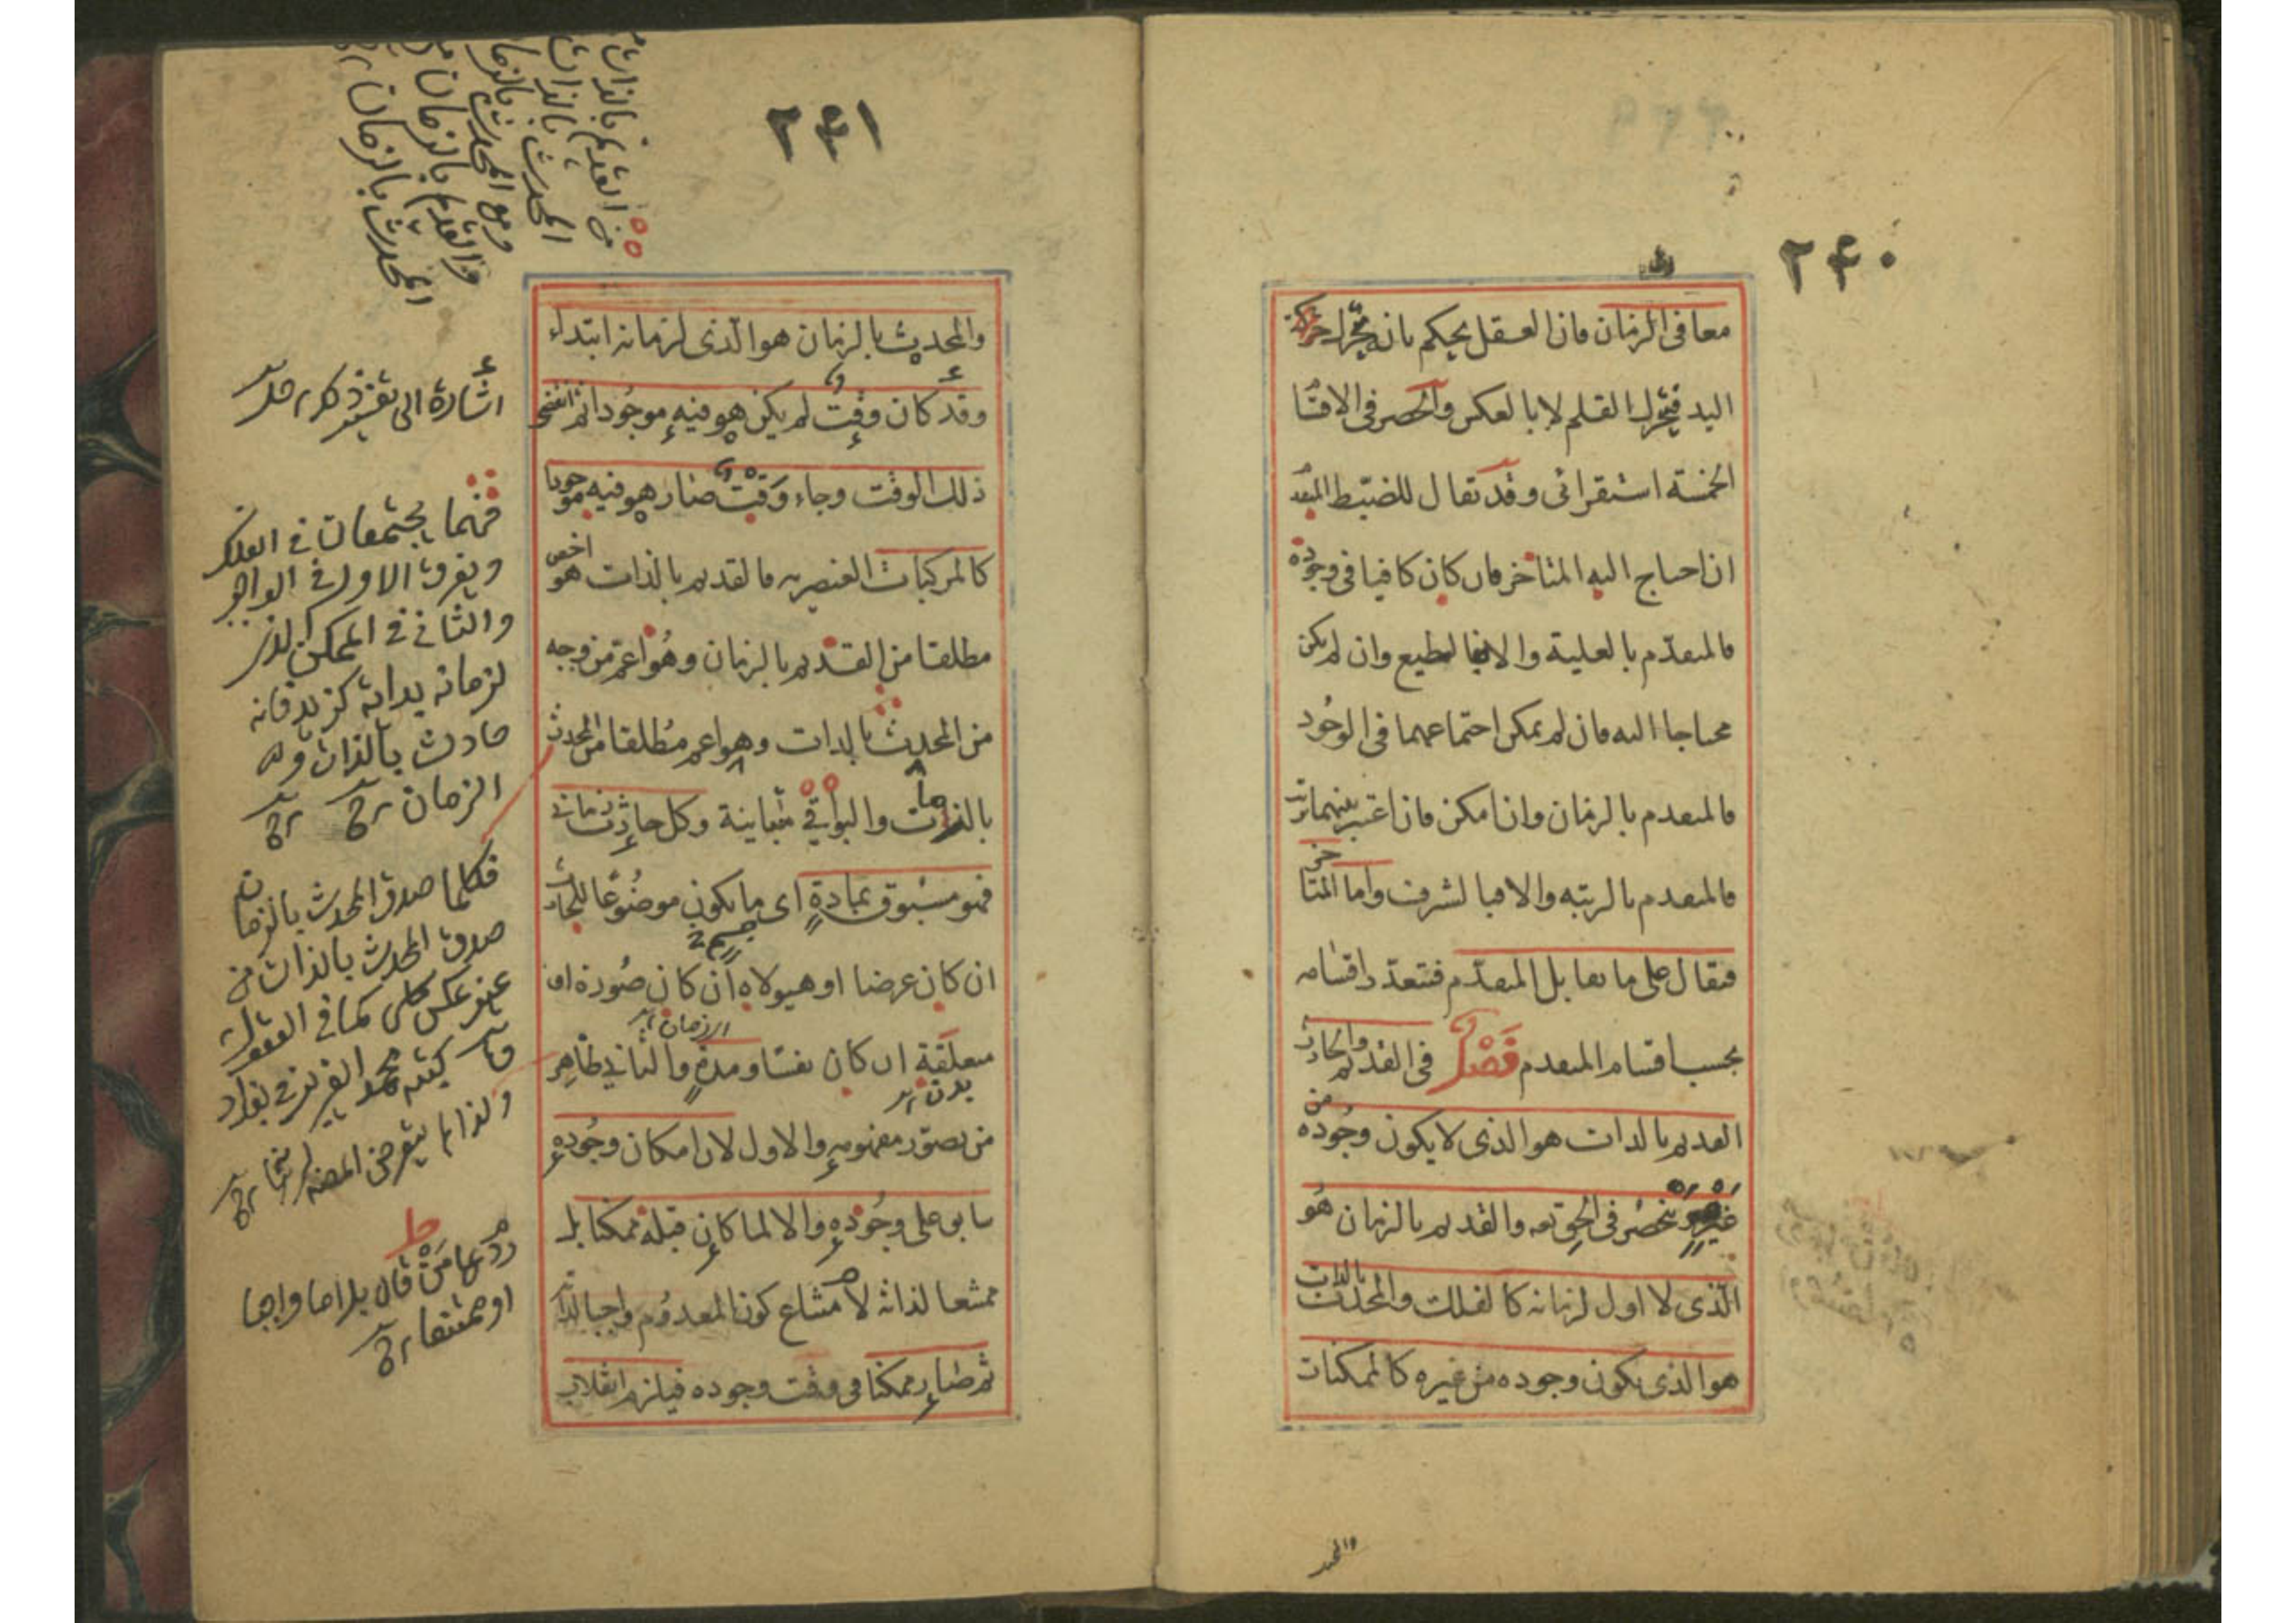 ٢٤٠
معا فى الزمان فان العقل يحكم بانه تحرك حركة
اليد فتحرك القلم لا بالعكس والحصر فى الاقسا
الخمسة استقرائى وقد تقال للضبط المتقد
ان احتاج اليه المتأخر فان كان كافيا فى وجوده
فالمتقدم بالعلية والا فبا لطبع وان لم يكن
محتاجا اليه فان لم يمكن اجتماعهما فى الوجود
فالمتقدم بالزمان وان امكن فان اعتبر بينهما ترتب
فالمتقدم بالرتبه والا فبا لشرف واما المتأخر
فيقال على ما يقابل المتقدم فتتعدد اقسامه
بحسب اقسام المتقدم فصل فى القديم والحادث
القديم بالذات هو الذى لا يكون وجوده من
غيره وينحصر فى الحق تعه والقديم بالزمان هو
الذى لا اول لزمانه كالفلك والمحدث بالذات
هو الذى يكون وجوده من غيره كالممكنات
والمحد
٢٤١
والمحدث بالزمان هو الذى لزمانه ابتداء
وقد كان وقت لم يكن هو فيه موجودا ثم انقضى
ذلك الوقت وجاء وقت صار هو فيه موجودا
كالمركبات العنصريه فالقديم بالذات هو اخص
مطلقا من القديم بالزمان وهو اعم من وجه
من المحدث بالذات وهو اعم مطلقا من المحدث
بالزمان والبواقي متباينة وكل حادث زماني
فهو مسبوق بمادة اى ما يكون موضوعا للحادث
ان كان عرضا او هيولاه ان كان صورة او
جسم
متعلقة ان كان نفسا ومدة والثاني ظاهر
الزمان
بدن
من تصور مفهومه والاول لان امكان وجوده
سابق على وجوده والا لما كان قبله ممكنا بل
ممتنعا لذاته لامتناع كون المعدوم واجبا لذاته
ثم صار ممكنا فى وقت وجوده فيلزم انقلاب
من القديم بالذات
المحدث بالذات
ومع المحدث بالزمان
والقديم بالزمان
المحدث بالزمان
اشارة الى
فهما يجتمعان في الفلك
ويفرق الاول في الواجب
والثاني في الممكن الذى
لزمانه بداية فانه
حادث بالذات
الزمان
فكلما صدق المحدث بالزمان
صدق المحدث بالذات من
غير عكس كلى كما في العقول
ولذا لم يتعرض المصه
من قال بل اما واجبا
او ممتنعا